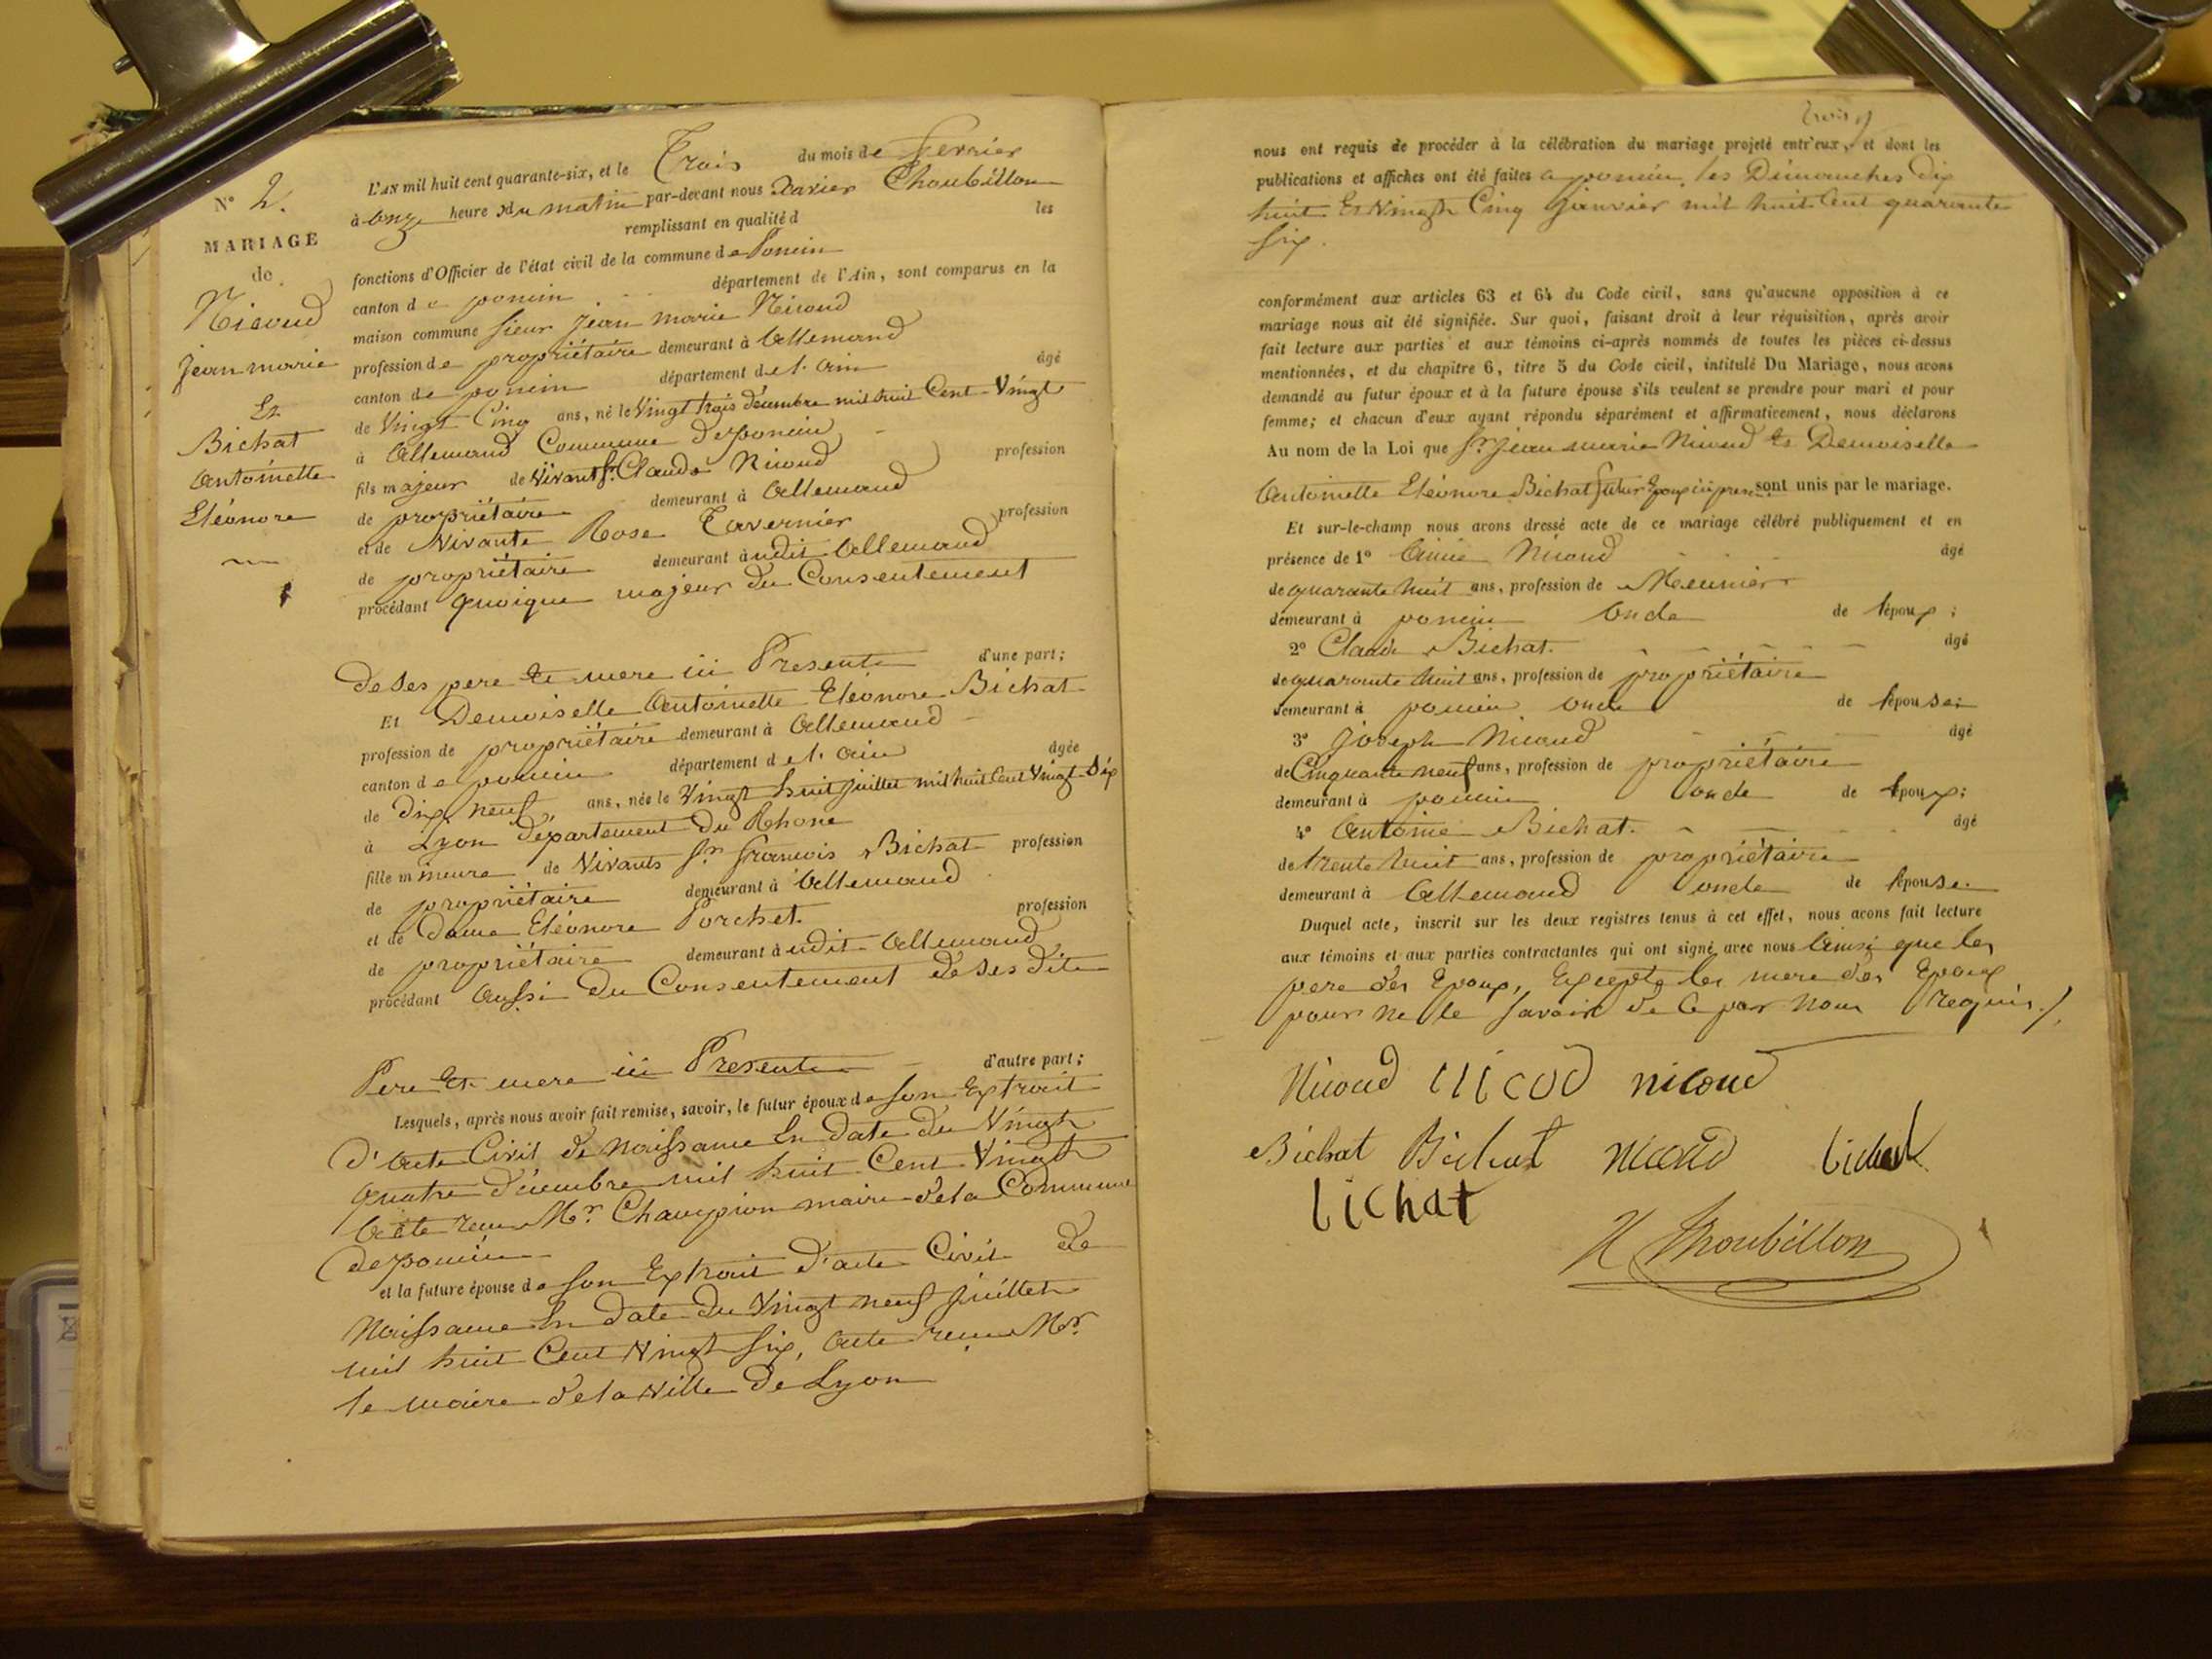 N° 2.
MARIAGE
de
Nicoud
Jean marie
Et
Bichat
Antoinette
Eléonore
L'AN mil huit cent quarante-six, et le Trois du mois de fevrier
à onze heure du matin par-devant nous Xavier Choubillon
remplissant en qualité d les
fonctions d'Officier de l'état civil de la commune de Poncin
canton de poncin département de l'Ain, sont comparus en la
maison commune sieur Jean marie Nicoud
profession de propriétaire demeurant à Allemand
canton de poncin département de l'ain âgé
de Vingt Cinq ans, né le Vingt trois décembre mil huit Cent Vingt
à Allemand Commune de poncin
fils majeur de Vivant Sr. Claude Nicoud profession
de propriétaire demeurant à Allemand
et de Vivante Rose Tavernier profession
de propriétaire demeurant à udit Allemand
procédant quoique majeur du Consentement
de ses pere et mere ici Presents d'une part;
Et Demoiselle Antoinette Eléonore Bichat
profession de propriétaire demeurant à Allemand
canton de poncin département de l'ain âgée
de dix neuf ans, née le Vingt huit juillet mil huit Cent Vingt Six
à Lyon département du Rhone
fille mineure de Vivants Sr. francois Bichat profession
de propriétaire demeurant à Allemand
et de Dame Eléonore Porchet profession
de propriétaire demeurant à udit Allemand
procédant Aussi du Consentement de ses dits
Pere Et mere ici Presents d'autre part;
Lesquels, après nous avoir fait remise, savoir, le futur époux de son Extrait
d'Acte Civil de Naissance En date du Vingt
quatre décembre mil huit Cent Vingt
Acte recu Mr. Champion maire de la Commune
de poncin
et la future épouse de son Extrait d'acte Civil de
Naissance En date du Vingt neuf juillet
mil huit Cent Vingt six, acte recu Mr.
le maire de la Ville de Lyon
trois
nous ont requis de procéder à la célébration du mariage projeté entr'eux, et dont les
publications et affiches ont été faites a poncin, les Dimanches dix
huit Et Vingt Cinq janvier mil huit Cent quarante
six.
conformément aux articles 63 et 64 du Code civil, sans qu'aucune opposition à ce
mariage nous ait été signifiée. Sur quoi, faisant droit à leur réquisition, après avoir
fait lecture aux parties et aux témoins ci-après nommés de toutes les pièces ci-dessus
mentionnées, et du chapitre 6, titre 5 du Code civil, intitulé Du Mariage, nous avons
demandé au futur époux et à la future épouse s'ils veulent se prendre pour mari et pour
femme; et chacun d'eux ayant répondu séparément et affirmativement, nous déclarons
Au nom de la Loi que Sr. Jean marie Nicoud Et Demoiselle
Antoinette Eléonore Bichat futur Epoux ici sont unis par le mariage.
Et sur-le-champ nous avons dressé acte de ce mariage célébré publiquement et en
présence de 1° Aimé Nicoud âgé
de quarante huit ans, profession de Meunier
demeurant à poncin oncle de l'époux;
2° Claude Bichat. âgé
de quarante huit ans, profession de propriétaire
demeurant à poncin oncle de l'épouse;
3° Joseph Nicoud âgé
de Cinquante neuf ans, profession de propriétaire
demeurant à poncin oncle de l'époux;
4° Antoine Bichat. âgé
de trente huit ans, profession de propriétaire
demeurant à Allemand oncle de l'épouse.
Duquel acte, inscrit sur les deux registres tenus à cet effet, nous avons fait lecture
aux témoins et aux parties contractantes qui ont signé avec nous Ainsi que les
pere des Epoux, Excepté les mere des Epoux
pour ne le savoir de Ce par Nous Requis./.
Nicoud nicod nicoud
Bichat Bichat nicoud bichat
bichat
X Choubillon